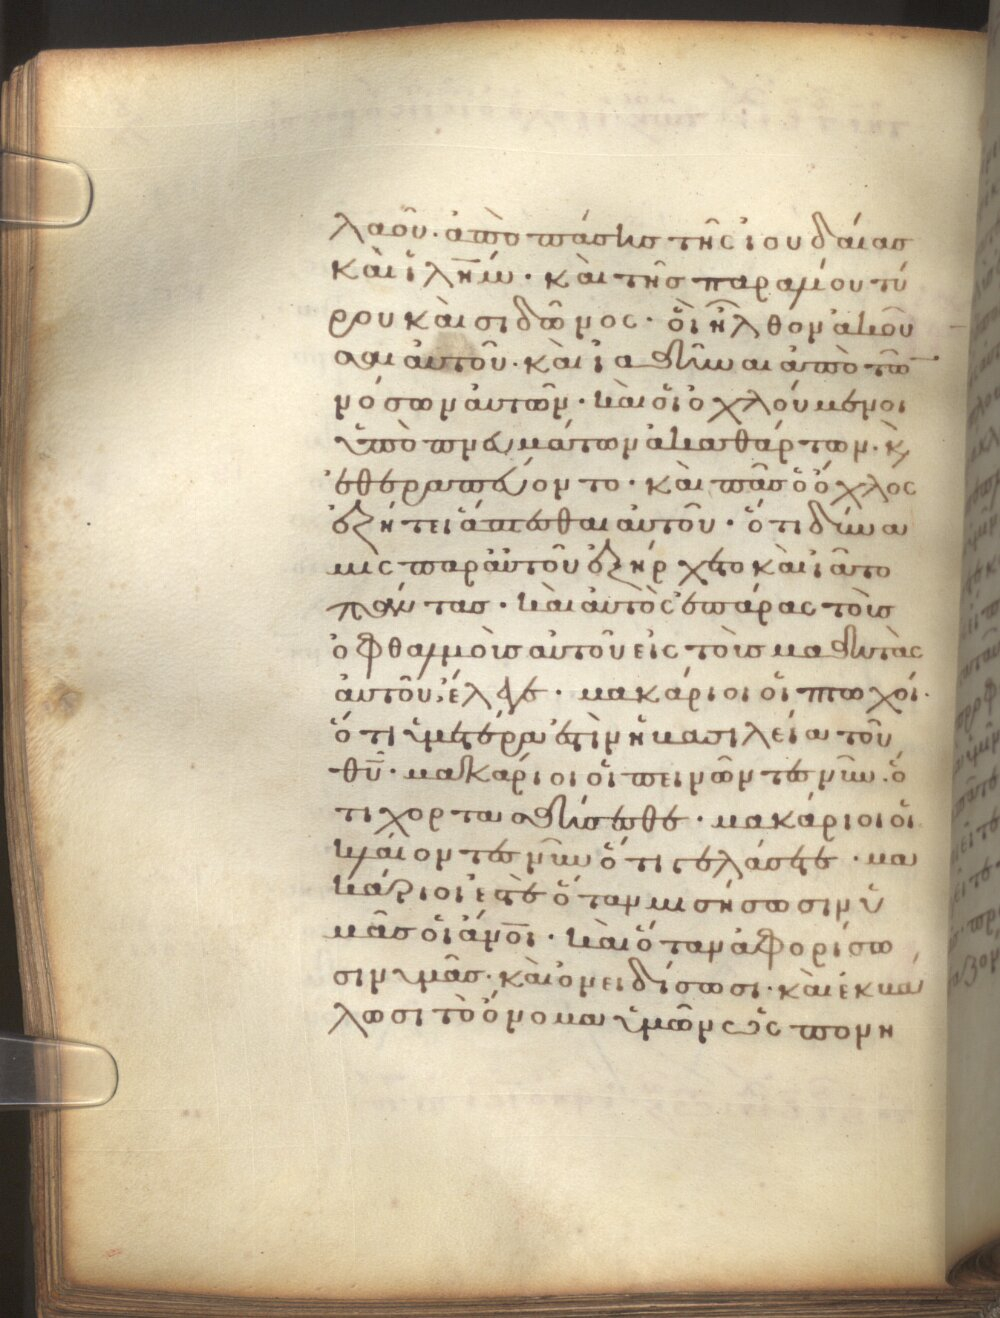 λαοῦ· ἀπὸ πάσης τῆς ἰουδαίας
καὶ ἱλῆμ· καὶ τῆς παραλίου τύ
ρου καὶ σιδῶνος· ὁὶ ἦλθον ἀκοῦ
σαι ἀυτοῦ· καὶ ἰαθῆναι ἀπὸ τῶ
νόσων ἀυτῶν· καὶ ὁι ὀχλούμενοι
ὑπὸ πνευμάτων ἀκαθάρτων· κ
ἐθεραπεύοντο· καὶ πᾶσ ὁ ὄχλος
ἐζήτει ἅπτεσθαι ἀυτοῦ· ὅτι δύνα
μις παρ ἀυτοῦ ἐξήρχετο καὶ ἰᾶτο
πάντας· καὶ ἀυτὸς ἐπάρας τοὺς
ὀφθαλμοὺς ἀυτοῦ εἰς τοὺς μαθητὰς
ἀυτοῦ, ἔλεγε· μακάριοι ὁι πτωχόι·
ὅτι ὑμετέρα ἐστὶν ἡ βασιλεία τοῦ
θῦ· μακάριοι ὁι πεινῶντες νῦν· ὅ
τι χορτασθήσεσθε· μακάριοι ὁι
κλάιοντες νῦν ὅτι γελάσετε· μα
κάριοι ἐστὲ ὅταν μισήσωσιν ὑ
μᾶς ὁι ἄνοι· καὶ ὅταν ἀφορίσω
σιν ὑμᾶς· καὶ ὀνειδίσωσι· καὶ ἐκβά
λωσι τὸ ὄνομα ὑμῶν ὡς πονη